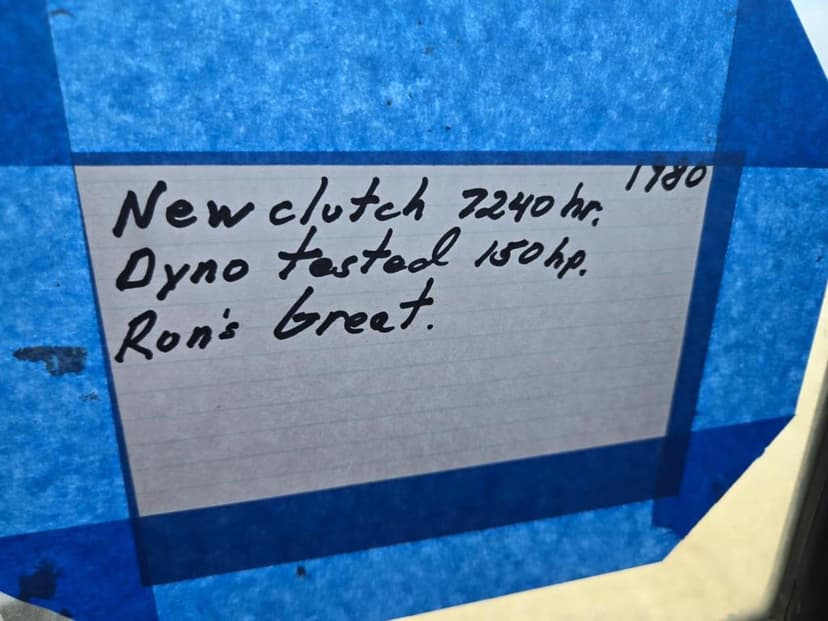 1980
New clutch 7240 hr.
Dyno tested 150 hp.
Run's Great.